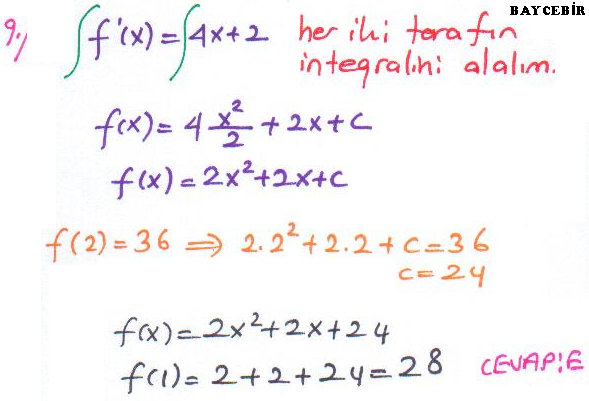 BAYCEBİR
9.) ∫f'(x) = ∫4x+2 her iki tarafın
integralini alalım.
f(x) = 4 x²/2 + 2x + c
f(x) = 2x²+2x+c
f(2) = 36 ⇒ 2.2²+2.2+c=36
c=24
f(x) = 2x²+2x+24
f(1) = 2+2+24=28 CEVAP:E